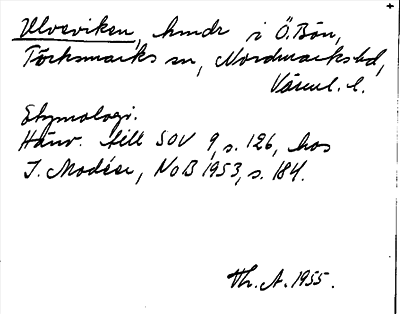 Ulvsviken, hmdr i Ö. Bön,
Törksmarks sn, Nordmarks hd,
Värml. l.
Etymologi.
Hänv. till SOV 9, s. 126, hos
I. Modéer, NoB 1953, s. 184.
Th. A. 1955.